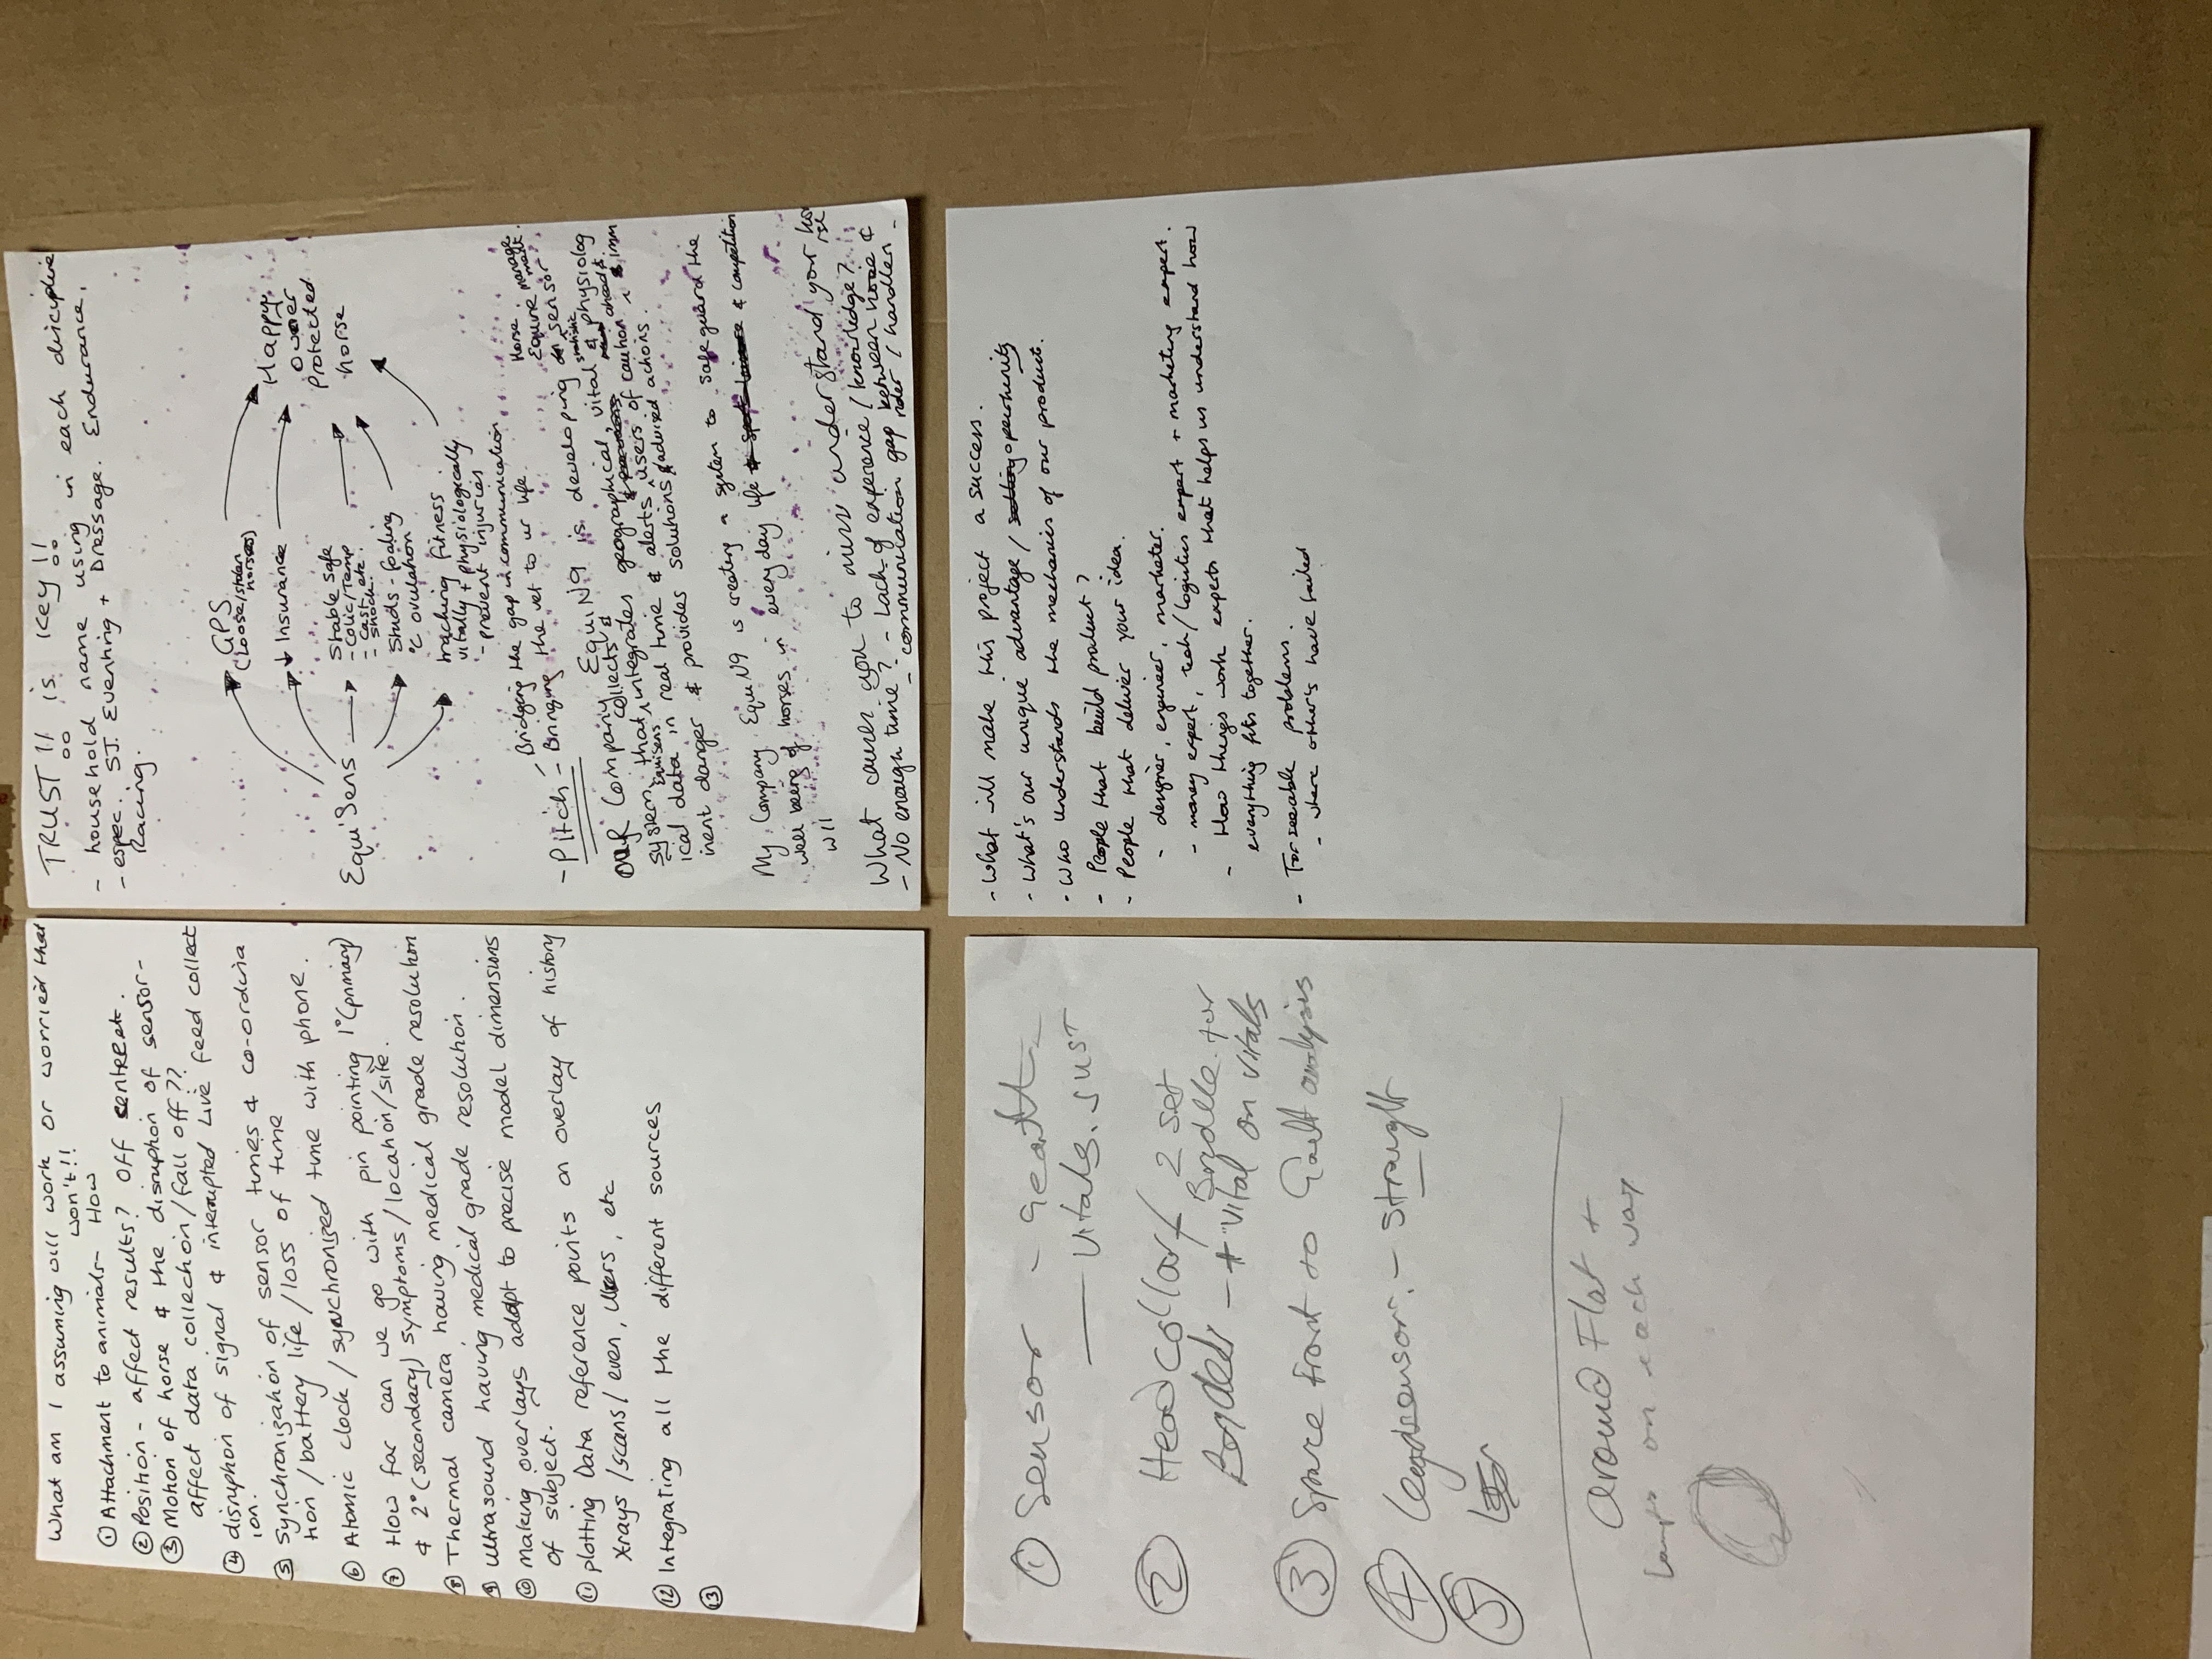 What am I assuming will work or worried that
won't!!
① Attachment to animals- How
② Position - affect results? Off centre etc.
③ Motion of horse & the disruption of sensor-
affect data collection/fall off??
④ disruption of signal & interrupted Live feed collect
ion.
⑤ Synchronization of sensor times & co-ordina
tion / battery life / loss of time
⑥ Atomic clock / synchronized time with phone.
⑦ How far can we go with pin pointing 1°(primary)
& 2°(secondary) symptoms/location/site.
⑧ Thermal camera having medical grade resolution
⑨ ultrasound having medical grade resolution.
⑩ making overlays adapt to precise model dimensions
of subject.
⑪ plotting Data reference points on overlay of history
xrays /scans/ even, , etc
⑫ Integrating all the different sources
⑬
TRUST!! is Key!!
- household name using in each discipline
- espec. SJ. Eventing + Dressage. Endurance,
Racing.
GPS
(Loose/stolen
horses)
↓ Insurance
Equi'Sens
Stable Safe
- Colic/Temp
- Cast etc.
- Shock.
Studs - foaling
°C ovulation
tracking fitness
vitally + physiologically
- prevent injuries
Happy
owner
Protected
horse
- Bridging the gap in communication
- Pitch - Bringing the vet to ur life.
Horse
Equine manage
ment.
our Company EquiN9 is developing sensor
collects & statistic
system that integrates geographical, vital & physiolog
Equisens
ical data in real time & alerts users of caution ahead & imm
inent danger & provides solutions & advised actions.
My Company EquiN9 is creating a system to safeguard the
well being of horses in every day life & competition
will
What causes you to miss understand your ho
rse
- No enough time? - Lack of experience / knowledge?
- communication gap between horse &
rider / handler -
① Sensor -
— Vitals. JUST
② Head collar / 2 set
Bridle for
- + vital on vitals
③ Spare front to Gait analysis
④ - straight
⑤
around Flat +
on each way
- What will make this project a success.
- What's our unique advantage / selling opportunity
- Who understands the mechanics of our product.
- People that build product?
- People that deliver your idea.
- designer, engineer, marketer.
- money expert, tech/logistics expert + marketing expert.
- How things work experts that helps us understand how
everything fits together.
- Forseeable problems.
- where other's have failed